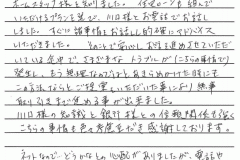 ホームステップ様と知りました。住宅ローンを組んで
いただけるプランを選び、川口様とお電話でお話し
しました。すぐに諸事情をお話しし的確にアドバイス
いただきました。そのことで安心しお話を進めさせていただ
いている中で、さまざまな トラブルが(こちらの事情で)
発生し、もう無理なのかなとあきらめかけた時にも
この方法ならとご提案していただいた事により無事
取り引きまで進める事が出来ました。
川口様の知識と銀行様との信頼関係も強く
こちらの事情も色々考慮をいただき感謝しております。
ネットなのでどうかなとの心配がありましたが、電話や